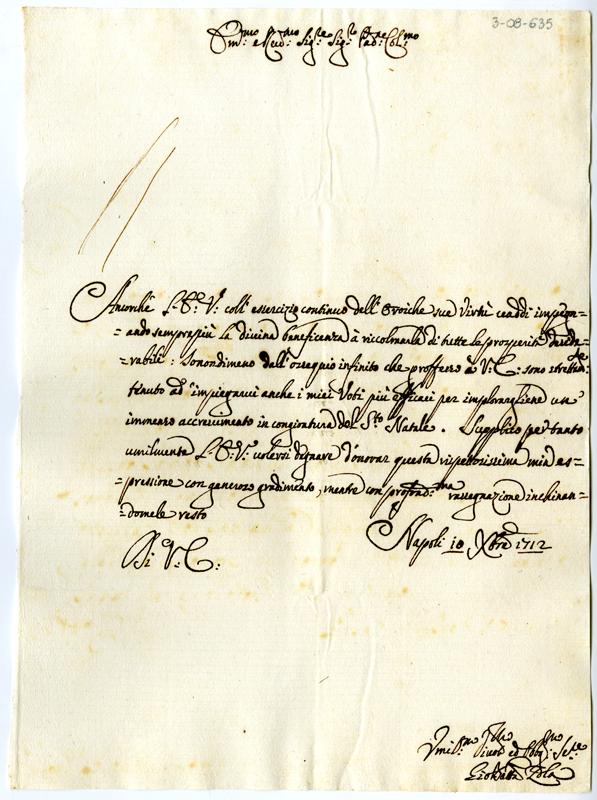 3-08-635
Em:mo e Rev:mo Sig:re Sig:r Pad:ne Col:mo
Ancorchè l'E: V: coll' essercizio continuo dell' Eroiche sue Virtù vaddi impegn-
-ando sempre più la divina beneficenza à riccolmarla di tutte le prosperità deside-
-rabili: Nonondimeno dall' ossequio infinito che proffesso à V: E: sono stretta-
tenuto ad impiegarvi anche i miei Voti più efficaci per implorargliene un'
immenso accrescimento in congiontura del S:to Natale. Supplico pertanto
umilmente l'E: V: volersi degnare d'onorar questa rispettosissima mia es-
-pressione con generoso gradimento, mentre con profond:ma rassegnazione inchinan-
-domele resto
Di V: E:
Napoli 10 Xbre 1712
Umil:mo Div:mo ed Obb:mo Se:re